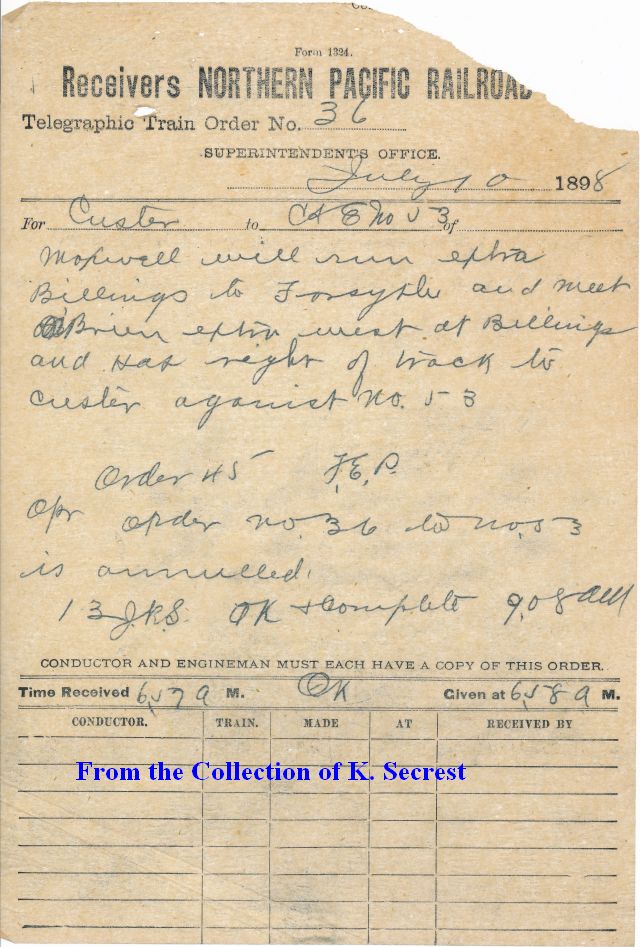 Form 1324.
Receivers NORTHERN PACIFIC RAILROAD
Telegraphic Train Order No. 36
SUPERINTENDENT'S OFFICE.
July 10 1898
For Custer to C & E No 53 of
Maxwell will run extra
Billings to Forsythe and meet
O'Brien extra west at Billings
and has right of track to
Custer against No. 53
Order 45 F.E.P.
Opr Order no. 36 to No. 53
is annulled.
13 J.K.S. OK & Complete 9.08 AM
CONDUCTOR AND ENGINEMAN MUST EACH HAVE A COPY OF THIS ORDER.
Time Received 6.57 a M. OK Given at 6.58 a M.
CONDUCTOR. TRAIN. MADE AT RECEIVED BY
From the Collection of K. Secrest